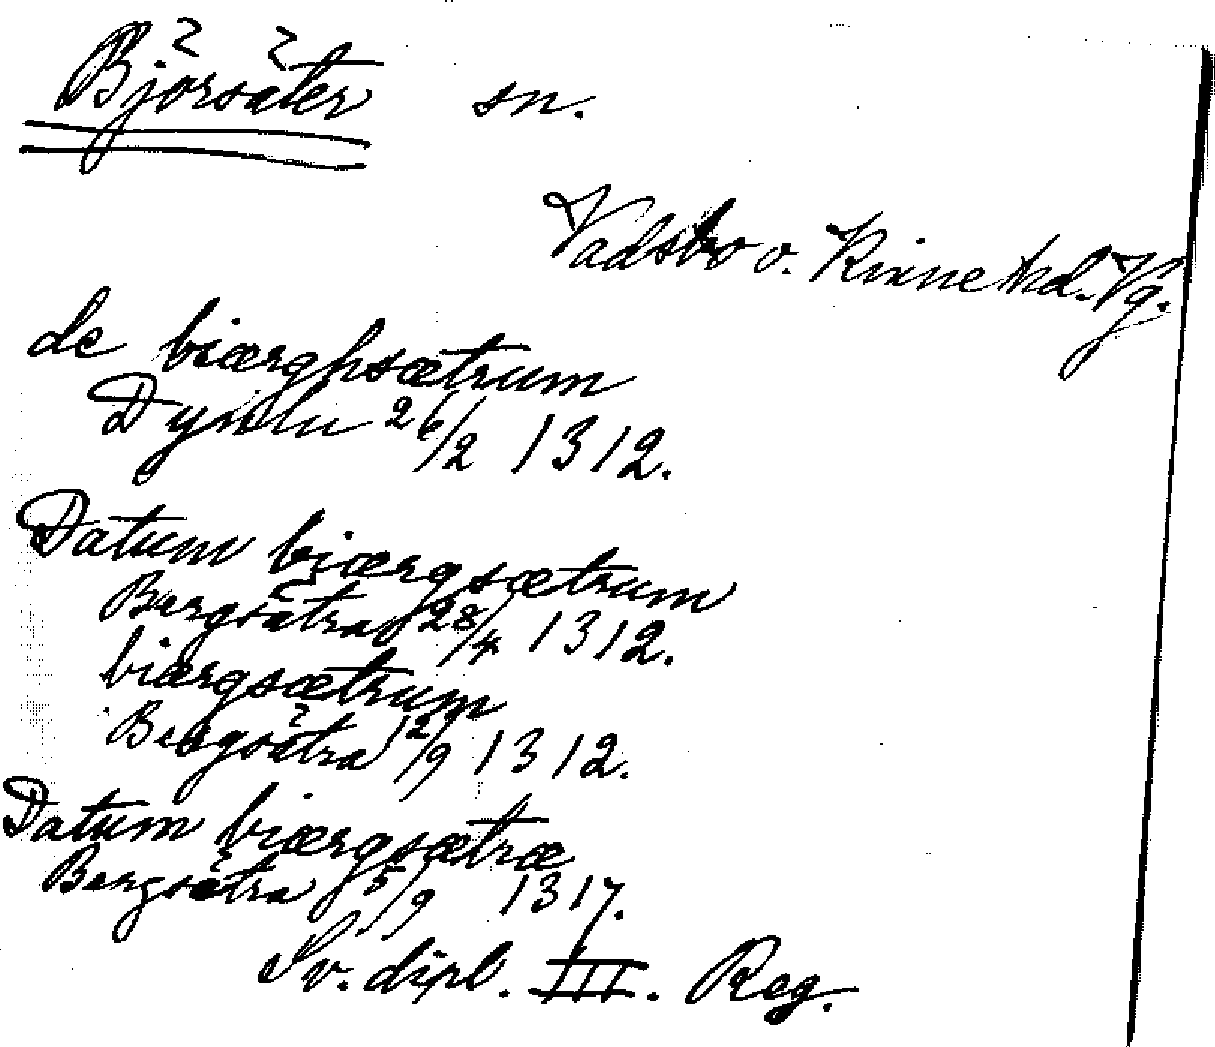 Björsäter sn.
Vadsbo o. Kinne hd. Vg.
de biærghsætrum
Dynlu 26/2 1312.
Datum biærgsætrum
Bergsätra 28/4 1312.
biærgsætrum
Bergsätra 12/9 1312.
Datum biærgsætræ
Bergsätra 5/9 1317.
Sv. dipl. III. Reg.